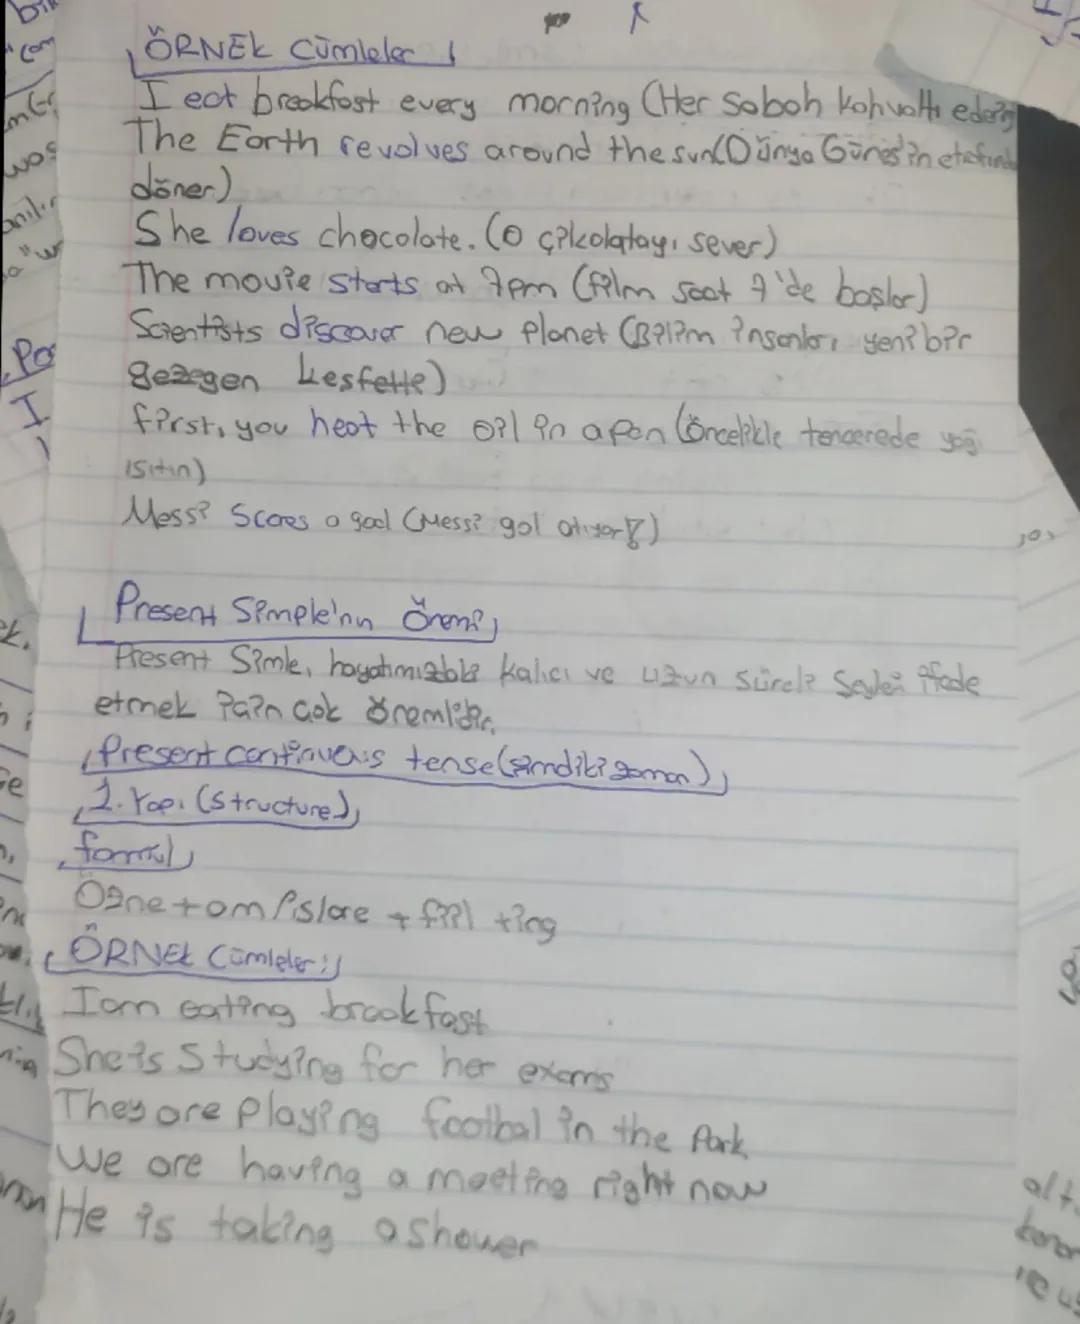 ÖRNEK Cümleler
I eat breakfast every morning (Her sabah kahvaltı ederim
The Earth revolves around the sun(Dünya Güneş'in etrafında
döner)
She loves chocolate. (O çikolatayı sever)
The movie starts at 7pm (film saat 7'de başlar)
Scientists discover new planet (Bilim insanları yeni bir
gezegen keşfette)
first, you heat the oil in a pan (öncelikle tencerede yağ
ısıtın)
Messi Scores a goal (Messi gol atıyor!)
Present Simple'nın Önemi
Present Simle, hayatımızdaki kalıcı ve uzun süreli şeyleri ifade
etmek için çok önemlidir.
Present continuous tense(şimdiki zaman)
1. Yapı (structure)
formül
Özne + am/is/are + fiil + ing
ÖRNEK Cümleler:
I am eating breakfast
She is Studying for her exams
They are playing footbal in the Park
We are having a meeting right now
He is taking a shower